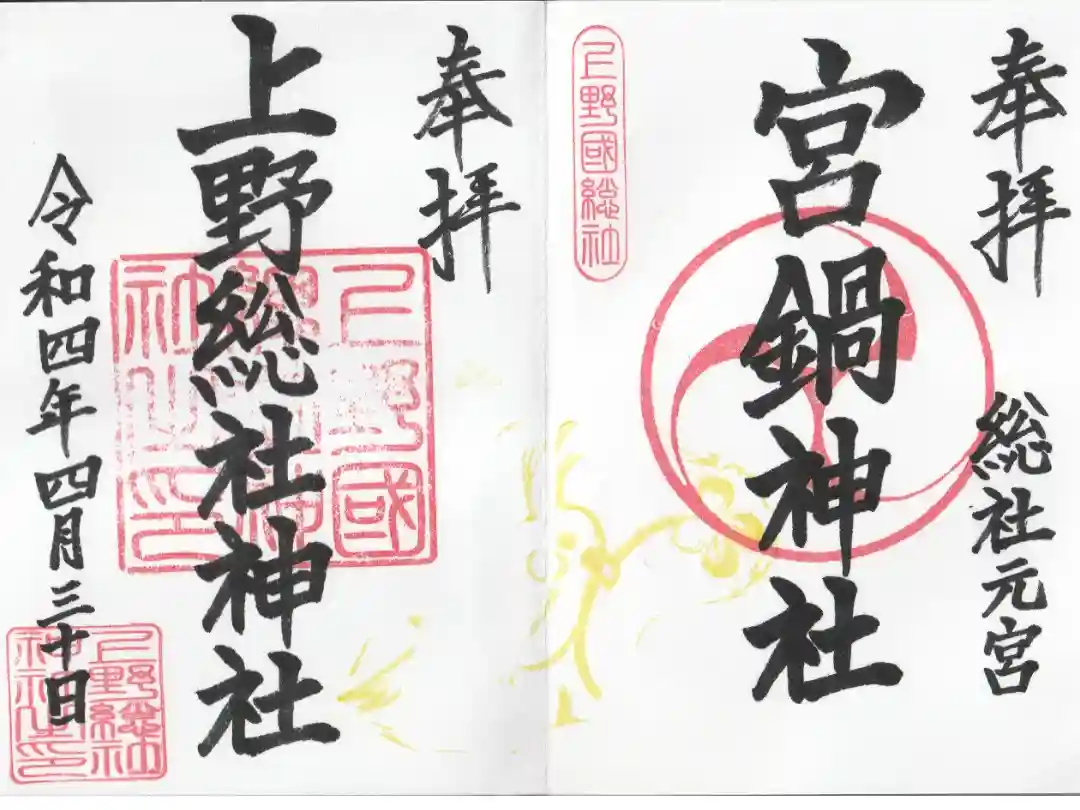 奉拝
総社元宮
宮鍋神社
上野國総社
奉拝
上野総社神社
令和四年四月三十日
上野國
神社之印
上野総社
神社之印